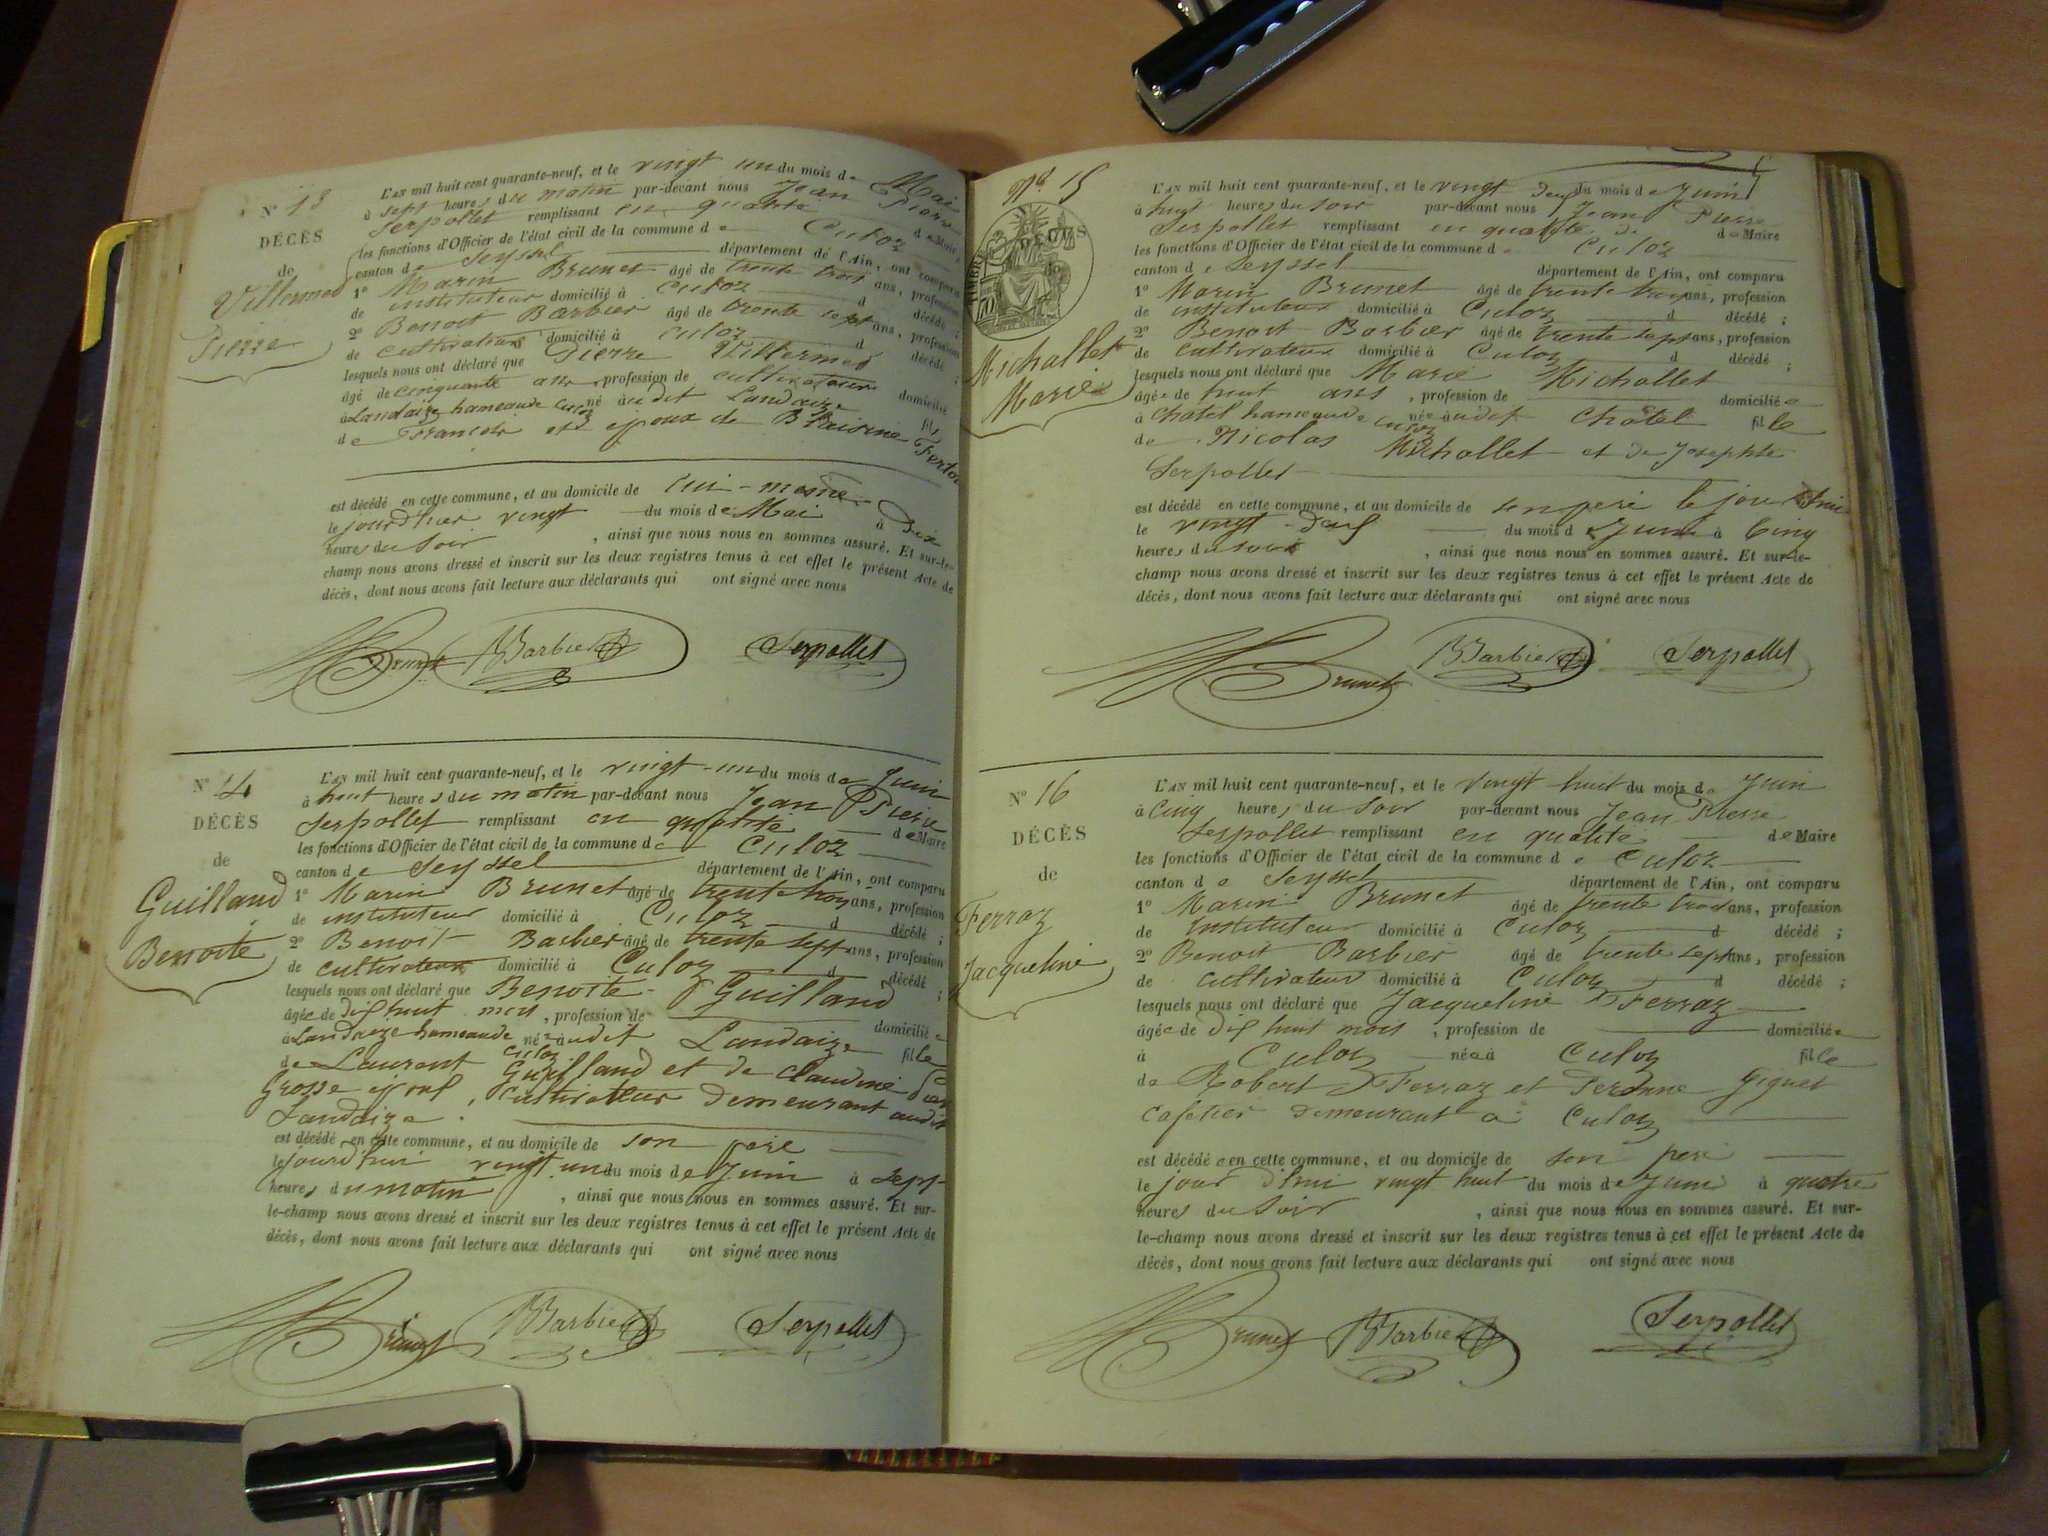 N° 13
DÉCÈS
de
Villermed
Pierre
L'AN mil huit cent quarante-neuf, et le vingt un du mois de Mai
à sept heures du matin par-devant nous Jean Pierre
Serpollet remplissant en qualité de Maire,
les fonctions d'Officier de l'état civil de la commune de Culoz
canton de Seyssel département de l'Ain, ont comparu
1° Marin Brunet âgé de trente trois ans, profession
de instituteur domicilié à Culoz d décédé ;
2° Benoit Barbier âgé de trente sept ans, profession
de cultivateur domicilié à Culoz d décédé ;
lesquels nous ont déclaré que Pierre Villermed
âgé de cinquante ans, profession de cultivateur domicilié
à Landaize hameau de Culoz né audit Landaize fils
de François et époux de Blaisine
est décédé en cette commune, et au domicile de lui-meme
le jourdhier vingt du mois de Mai à Dix
heures du soir, ainsi que nous nous en sommes assuré. Et sur-le-
champ nous avons dressé et inscrit sur les deux registres tenus à cet effet le présent Acte de
décès, dont nous avons fait lecture aux déclarants qui ont signé avec nous
Brunet BBarbier Serpollet
N° 14
DÉCÈS
de
Guilland
Benoite
L'AN mil huit cent quarante-neuf, et le vingt-un du mois de Juin
à huit heures du matin par-devant nous Jean Pierre
Serpollet remplissant en qualité de Maire
les fonctions d'Officier de l'état civil de la commune de Culoz
canton de Seyssel département de l'Ain, ont comparu
1° Marin Brunet âgé de trente trois ans, profession
de instituteur domicilié à Culoz d décédé ;
2° Benoit Barbier âgé de trente sept ans, profession
de cultivateur domicilié à Culoz d décédé ;
lesquels nous ont déclaré que Benoite Guilland
âgée de dix huit mois, profession de domiciliée
à Landaize hameau de Culoz née audit Landaize fille
de Laurent Guilland et de Claudine
Grosse époux, Cultivateur demeurant audit
Landaize.
est décédé en cette commune, et au domicile de son père
le jourd'hui vingt un du mois de Juin à sept
heures du matin, ainsi que nous nous en sommes assuré. Et sur-
le-champ nous avons dressé et inscrit sur les deux registres tenus à cet effet le présent Acte de
décès, dont nous avons fait lecture aux déclarants qui ont signé avec nous
Brunet BBarbier Serpollet
N° 15
DÉCÈS
de
Michallet
Marie
L'AN mil huit cent quarante-neuf, et le vingt deux du mois de Juin
à huit heures du soir par-devant nous Jean Pierre
Serpollet remplissant en qualité de de Maire
les fonctions d'Officier de l'état civil de la commune de Culoz
canton de Seyssel département de l'Ain, ont comparu
1° Marin Brunet âgé de trente trois ans, profession
de instituteur domicilié à Culoz d décédé ;
2° Benoit Barbier âgé de trente sept ans, profession
de cultivateur domicilié à Culoz d décédé ;
lesquels nous ont déclaré que Marie Michollet
âgée de huit ans, profession de domiciliée
à Châtel hameau de Culoz née audit Châtel fille
de Nicolas Michollet et de Josephte
Serpollet
est décédé en cette commune, et au domicile de son père le jour d'hui
le vingt-deux du mois de Juin à Cinq
heures du soir, ainsi que nous nous en sommes assuré. Et sur-le-
champ nous avons dressé et inscrit sur les deux registres tenus à cet effet le présent Acte de
décès, dont nous avons fait lecture aux déclarants qui ont signé avec nous
Brunet BBarbier Serpollet
N° 16
DÉCÈS
de
Ferraz
Jacqueline
L'AN mil huit cent quarante-neuf, et le vingt huit du mois de Juin
à Cinq heures du soir par-devant nous Jean Pierre
Serpollet remplissant en qualité de Maire
les fonctions d'Officier de l'état civil de la commune de Culoz
canton de Seyssel département de l'Ain, ont comparu
1° Marin Brunet âgé de trente trois ans, profession
de Instituteur domicilié à Culoz d décédé ;
2° Benoit Barbier âgé de trente sept ans, profession
de cultivateur domicilié à Culoz d décédé ;
lesquels nous ont déclaré que Jacqueline Ferraz
âgée de dix huit mois, profession de domiciliée
à Culoz née à Culoz fille
de Robert Ferraz et Peronne Giguet
cafetier demeurant à Culoz
est décédée en cette commune, et au domicile de son père
le jour d'hui vingt huit du mois de Juin à quatre
heures du soir, ainsi que nous nous en sommes assuré. Et sur-
le-champ nous avons dressé et inscrit sur les deux registres tenus à cet effet le présent Acte de
décès, dont nous avons fait lecture aux déclarants qui ont signé avec nous
Brunet BBarbier Serpollet